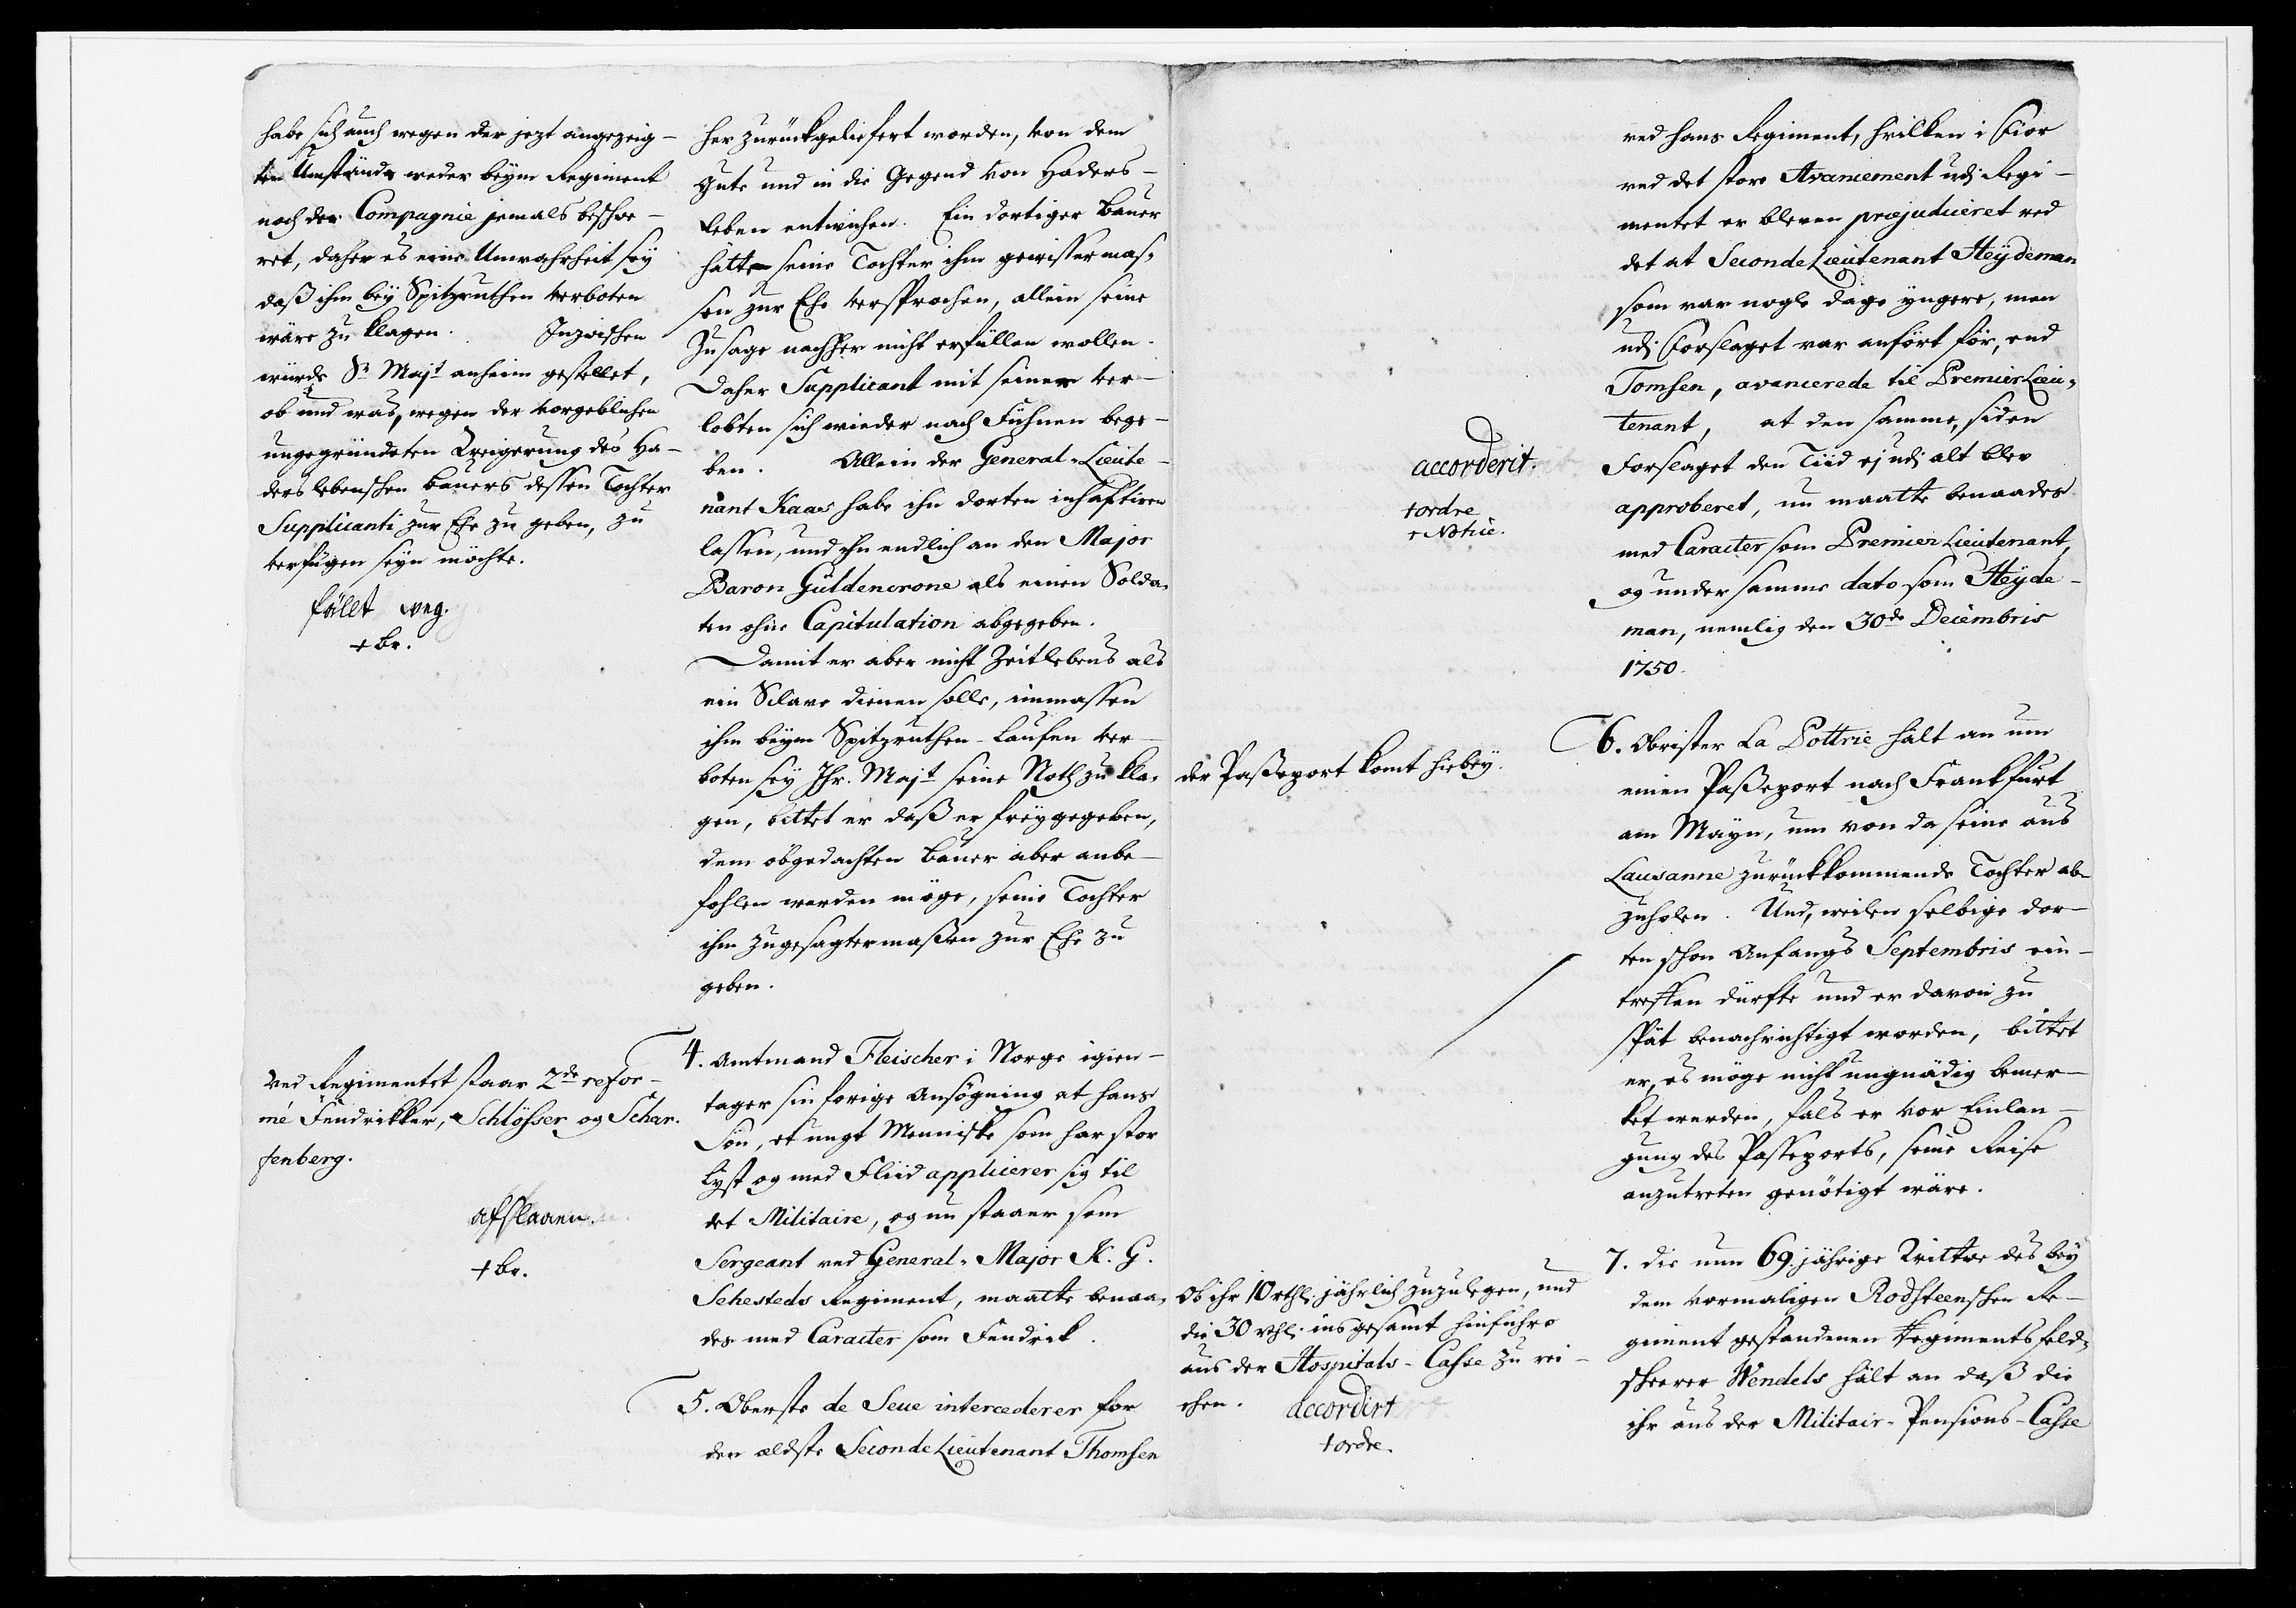 habe sich auch wegen der jezt angezeig-
ten Umstände weder beym Regiment
noch der Compagnie jemals beschwe-
ret, daher es eine Unwahrheit sey
daß ihm bey Spitzruthen verboten
wäre zu klagen. Inzwischen
würde Sr. Majt anheim gestellet,
ob und was, wegen der vorgeblichen
ungegründeten Weigerung des Ha-
derslebenschen Bauers dessen Tochter
Supplicanti zur Ehe zu geben, zu
verfügen seyn möchte.
fällt weg.
+ br.
Ved Regimentet staar 2de refor-
mé Fendrikker, Schlösser og Schar-
fenberg.
afslaaen.
+ br.
her zurückgeliefert worden, von dem
Gute und in die Gegend von Haders-
leben entwichen. Ein dortiger Bauer
hätte seine Tochter ihm gewissermas-
sen zur Ehe versprochen, allein seine
Zusage nachher nicht erfüllen wollen.
Daher Supplicant mit seiner ver-
lobten sich wieder nach Fühnen bege-
ben. Allein der General-Lieute-
nant Kaas habe ihn dorten inhaftiren
lassen, und ihn endlich an den Major
Baron Güldencrone als einen Solda-
ten ohne Capitulation abgegeben.
Damit er aber nicht Zeitlebens als
ein Sclave dienen solle, immassen
ihm beym Spitzruthen-Laufen ver-
boten sey Ihr. Majt seine Noth zu kla-
gen, bittet er daß er freygegeben,
dem obgedachten Bauer aber anbe-
fohlen werden möge, seine Tochter
ihm zugesagtermaßen zur Ehe zu
geben.
4. Amtmand Fleischer i Norge igien-
tager sin forige Ansögning at hans
Sön, et ungt Menniske som har stor
Lyst og med Fliid applicerer sig til
det Militaire, og nu staaer som
Sergeant ved General-Major K. G.
Sehesteds Regiment, maatte benaa-
des med Caracter som Fendrik.
5. Oberste de Seue intercederer for
den ældste Seconde Lieutenant Thomsen
accorderit.
+ ordre
+ Notice.
der Paßeport komt hiebey.
Ob ihr 10 rthl. jährlich zuzulegen, und
die 30 rthl. insgesamt hinführo
aus der Hospitals-Casse zu rei-
chen.
accordirt
+ ordre.
ved hans Regiment, hvilken i Fior
ved det store Avancement udj Regi-
mentet er bleven præjudiceret ved
det at Seconde Lieutenant Heydeman
som var nogle Dage yngere, men
udj Forslaget var anfört för, end
Tomsen, avancerede til Premier Lieu-
tenant, at den samme, siden
Forslaget den Tiid ej udj alt blev
approberet, nu maatte benaades
med Caracter som Premier Lieutenant,
og under samme dato som Heyde-
man, nemlig den 30de Decembris
1750.
6. Obrister La Pottrie hält an um
einen Paßeport nach Frankfurt
am Mayn, um von da seine aus
Lausanne zurückkommende Tochter ab-
zuholen. Und, weilen selbige dor-
ten schon Anfangs Septembris ein-
treffen dürfte und er davon zu
spät benachrichtigt worden, bittet
er, es möge nicht ungnädig bemer-
ket werden, fals er vor Einlan-
gung des Passeports, seine Reise
anzutreten genötigt wäre.
7. die nun 69. jährige Wittwe des bey
dem vormaligen Rodsteenschen Re-
giment gestandenen Regimentsfeld-
scheerer Wendels hält an daß die
ihr aus der Militair-Pensions-Casse